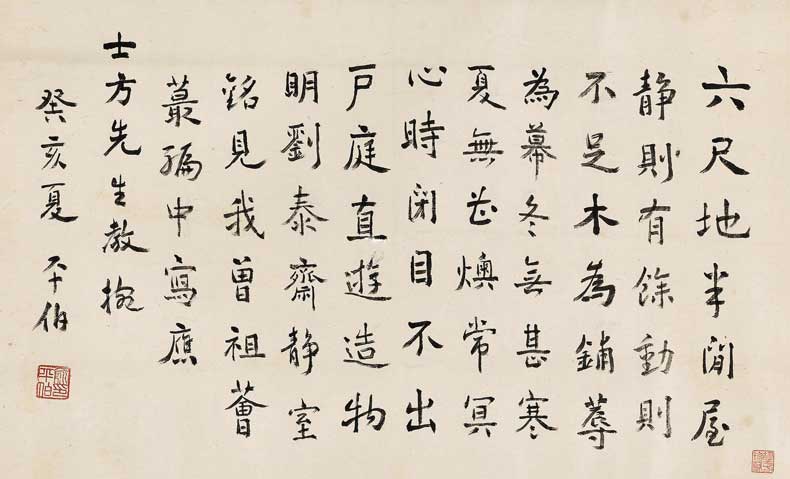 六尺地半間屋
静則有餘動則
不足木為鋪蓐
為幕冬無甚寒
夏無燠常冥
心時閉目不出
戶庭直遊造物
明劉泰齋静室
銘見我曾祖薈
蕞編中寫應
士方先生教
癸亥夏 平伯